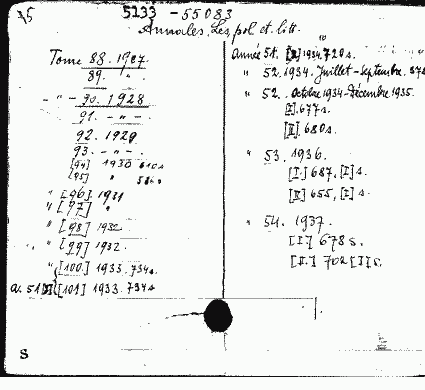 15
5133 - 55083
Annales, Les, pol. et litt.
Tome 88. 1927
89. " -
- " - 90. 1928
91. - " -
92. 1929
93. - " -
[94] 1930 610 s
[95] " 586 s
" [96] 1931
" [97] "
" [98] 1932
" [99] 1932.
" [100.] 1933. 734 s.
a. 51 [I] [101] 1933. 734 s
Année 51. [II] 1934. 720 s.
" 52. 1934. Juillet - Septembre. 374
" 52. Octobre 1934 - Décembre 1935.
[I]. 677 s.
[II] 680 s.
" 53. 1936.
[I.] 687, [I] s.
[II] 655, [I] s.
" 54. 1937
[I] 678 s.
[II.] 702 [I] s.
S